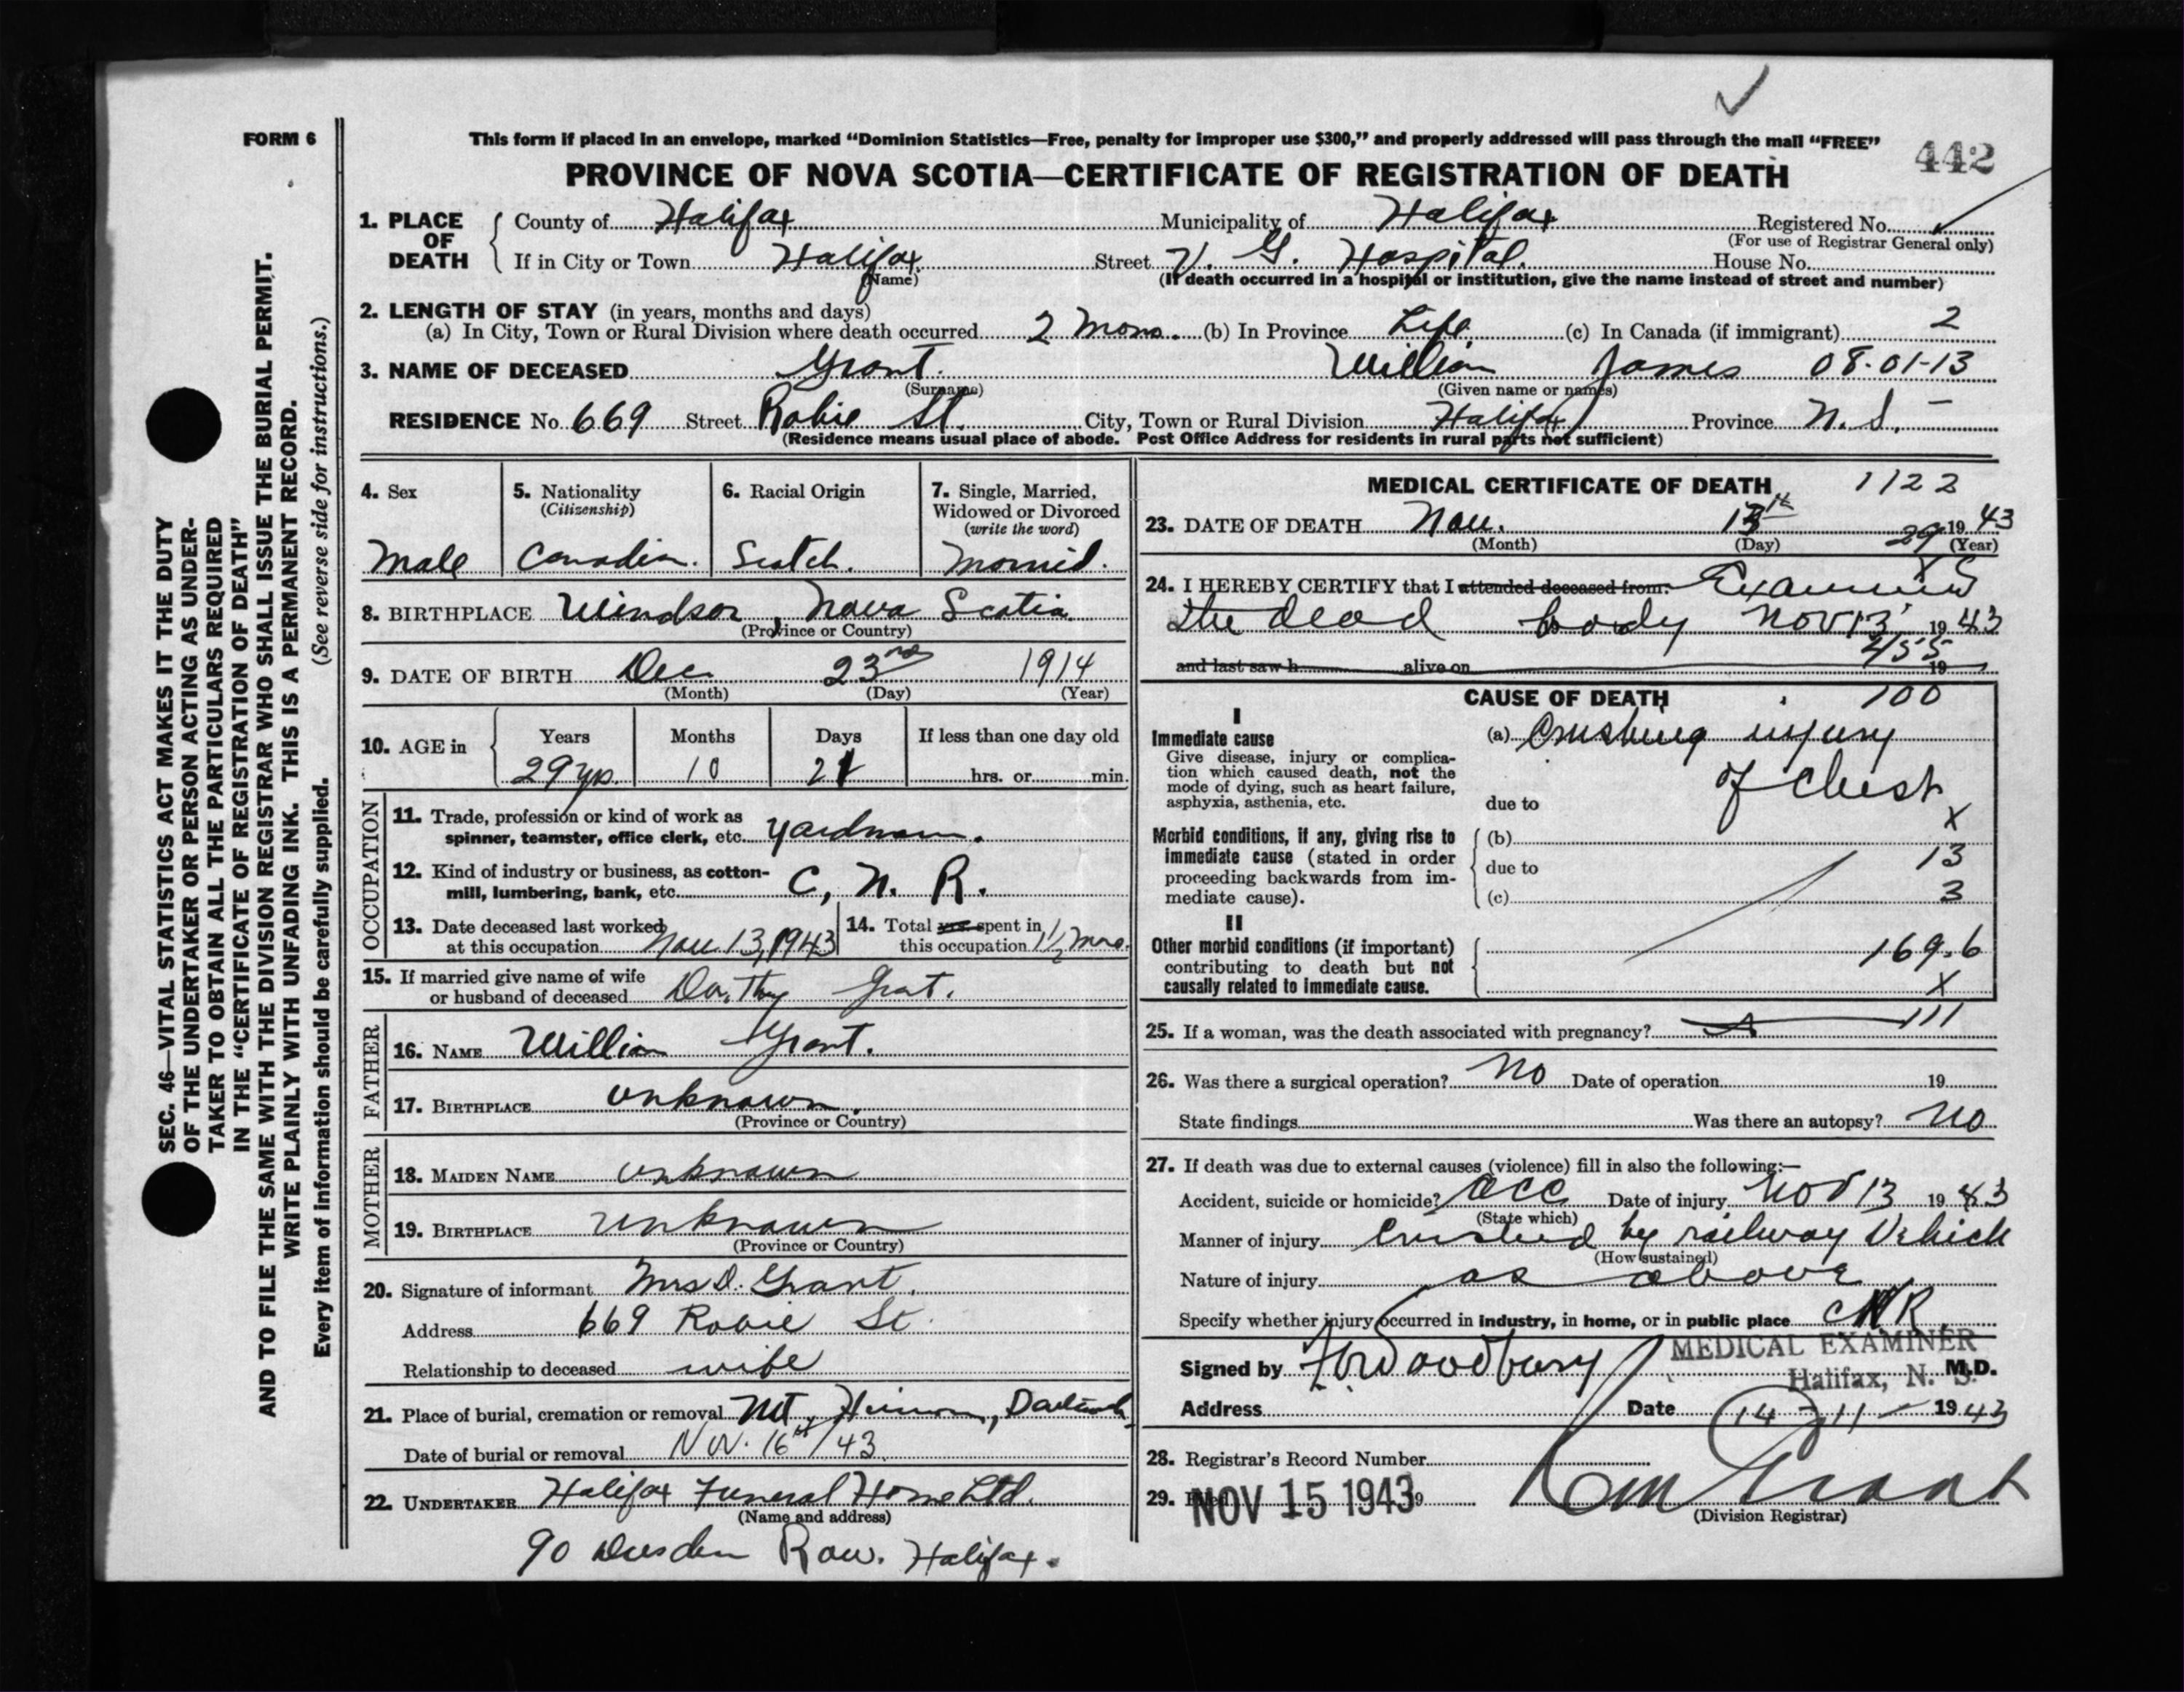 FORM 6
This form if placed in an envelope, marked "Dominion Statistics—Free, penalty for improper use $300," and properly addressed will pass through the mail "FREE"
442
PROVINCE OF NOVA SCOTIA—CERTIFICATE OF REGISTRATION OF DEATH
1. PLACE OF DEATH
County of Halifax Municipality of Halifax Registered No.
(For use of Registrar General only)
If in City or Town Halifax Street V. G. Hospital. House No.
(Name) (If death occurred in a hospital or institution, give the name instead of street and number)
2. LENGTH OF STAY (in years, months and days)
(a) In City, Town or Rural Division where death occurred 2 Mons. (b) In Province Life. (c) In Canada (if immigrant) 2
3. NAME OF DECEASED Grant. William James 08-01-13
(Surname) (Given name or names)
RESIDENCE No. 669 Street Robie St. City, Town or Rural Division Halifax Province N. S. —
(Residence means usual place of abode. Post Office Address for residents in rural parts not sufficient)
4. Sex
Male
5. Nationality
(Citizenship)
Canadian.
6. Racial Origin
Scotch.
7. Single, Married,
Widowed or Divorced
(write the word)
Married.
8. BIRTHPLACE Windsor, Nova Scotia.
(Province or Country)
9. DATE OF BIRTH Dec 23rd 1914
(Month) (Day) (Year)
10. AGE in
Years Months Days If less than one day old
29 yrs. 10 21 hrs. or min.
OCCUPATION
11. Trade, profession or kind of work as
spinner, teamster, office clerk, etc. Yardman.
12. Kind of industry or business, as cotton-
mill, lumbering, bank, etc. C. N. R.
13. Date deceased last worked
at this occupation Nov 13, 1943
14. Total yrs. spent in
this occupation 1½ mns.
15. If married give name of wife
or husband of deceased Dorthy Grant.
FATHER
16. NAME William Grant.
17. BIRTHPLACE unknown.
(Province or Country)
MOTHER
18. MAIDEN NAME unknown
19. BIRTHPLACE unknown
(Province or Country)
20. Signature of informant Mrs D. Grant.
Address 669 Robie St.
Relationship to deceased wife
21. Place of burial, cremation or removal Mt. Hermon, Dartmouth
Date of burial or removal Nov. 16th/43.
22. UNDERTAKER Halifax Funeral Home Ltd.
(Name and address)
90 Dresden Row. Halifax.
MEDICAL CERTIFICATE OF DEATH 1122
23. DATE OF DEATH Nov. 13th 1943
(Month) (Day) 29 (Year)
24. I HEREBY CERTIFY that I attended deceased from: Examined
the dead body Nov 13 1943
455
and last saw h alive on 19
CAUSE OF DEATH
100
I
Immediate cause
Give disease, injury or complica-
tion which caused death, not the
mode of dying, such as heart failure,
asphyxia, asthenia, etc.
(a) Crushing injury
of Chest
due to
X
Morbid conditions, if any, giving rise to
immediate cause (stated in order
proceeding backwards from im-
mediate cause).
(b)
13
due to
(c) 3
II
Other morbid conditions (if important)
contributing to death but not
causally related to immediate cause.
169.6
X
25. If a woman, was the death associated with pregnancy? 111
26. Was there a surgical operation? No Date of operation 19
State findings Was there an autopsy? No
27. If death was due to external causes (violence) fill in also the following:—
Accident, suicide or homicide? Acc Date of injury Nov 13 1943
(State which)
Manner of injury Crushed by railway Vehicle
(How sustained)
Nature of injury as above
Specify whether injury occurred in industry, in home, or in public place CNR
MEDICAL EXAMINER
Signed by Woodbury M.D.
Halifax, N. S.
Address Date 14-11- 1943
28. Registrar's Record Number
29. Filed NOV 15 1943 19
(Division Registrar)
SEC. 46—VITAL STATISTICS ACT MAKES IT THE DUTY
OF THE UNDERTAKER OR PERSON ACTING AS UNDER-
TAKER TO OBTAIN ALL THE PARTICULARS REQUIRED
IN THE "CERTIFICATE OF REGISTRATION OF DEATH"
AND TO FILE THE SAME WITH THE DIVISION REGISTRAR WHO SHALL ISSUE THE BURIAL PERMIT.
WRITE PLAINLY WITH UNFADING INK. THIS IS A PERMANENT RECORD.
Every item of information should be carefully supplied. (See reverse side for instructions.)